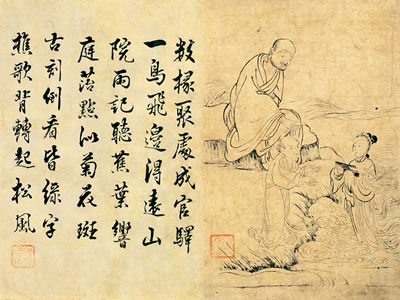 數椽聚處成官驛
一鳥飛邊得遠山
院雨記聽蕉葉響
庭落點沁菊花斑
古刻倒看皆緣字
樵歌背轉起松風